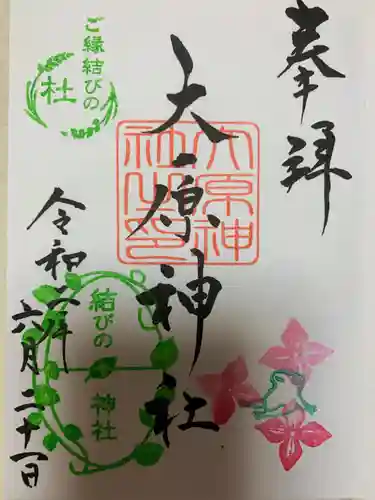 奉拝
大原神社
大原神社之印
ご縁結びの
社
令和二年
六月二十一日
結びの
神社